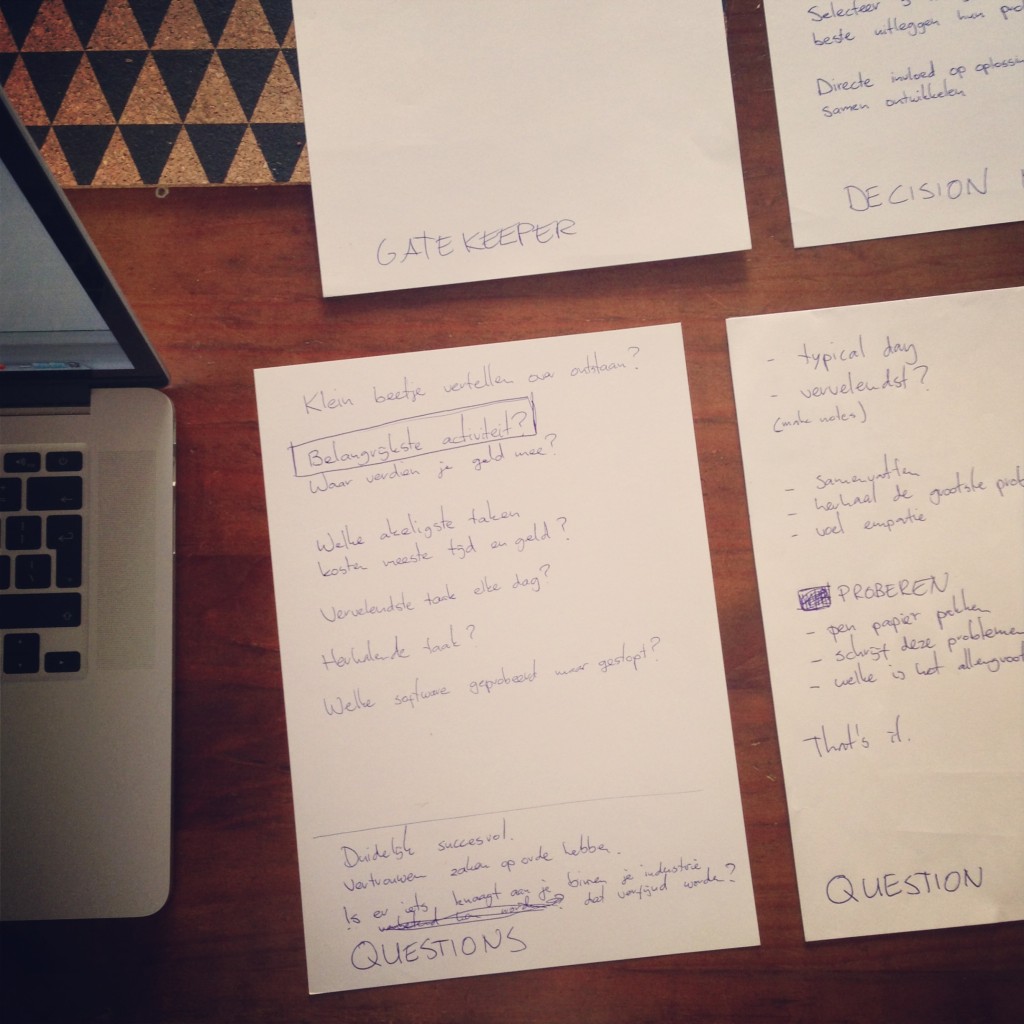 GATEKEEPER
Selecteer
beste uitleggen hun
Directe invloed op
samen ontwikkelen
DECISION
Klein beetje vertellen over ontstaan?
Belangrijkste activiteit?
Waar verdien je geld mee?
Welke akeligste taken
kosten meeste tijd en geld?
Vervelendste taak elke dag?
Herhalende taak?
Welke software geprobeerd maar gestopt?
Duidelijk succesvol.
Vertrouwen zaken op orde hebben.
Is er iets, knaagt aan je binnen je industrie
dat verfijnd worde?
QUESTIONS
- typical day
- vervelendst?
(make notes)
- samenvatten
- herhaal de grootste
- voel empatie
PROBEREN
- pen papier pakken
- schrijf deze problemen
- welke is het
That's it.
QUESTION